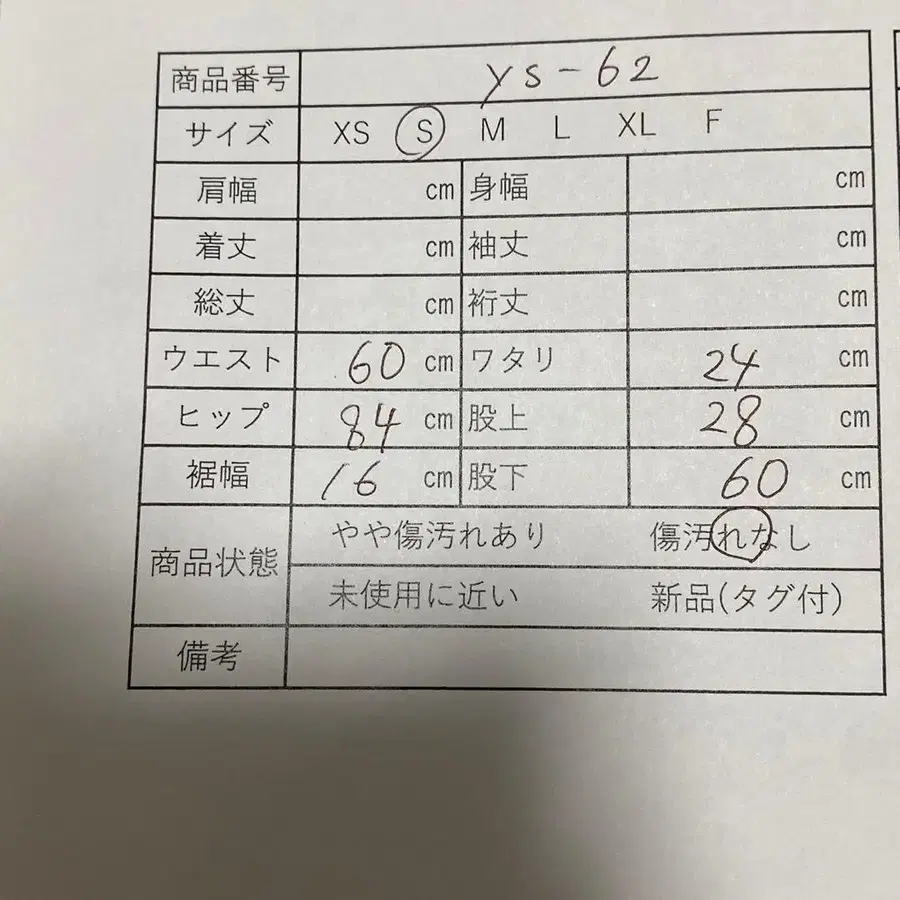 商品番号 ys-62
サイズ XS S M L XL F
肩幅 cm 身幅 cm
着丈 cm 袖丈 cm
総丈 cm 裄丈 cm
ウエスト 60 cm ワタリ 24 cm
ヒップ 84 cm 股上 28 cm
裾幅 16 cm 股下 60 cm
商品状態 やや傷汚れあり 傷汚れなし
未使用に近い 新品(タグ付)
備考